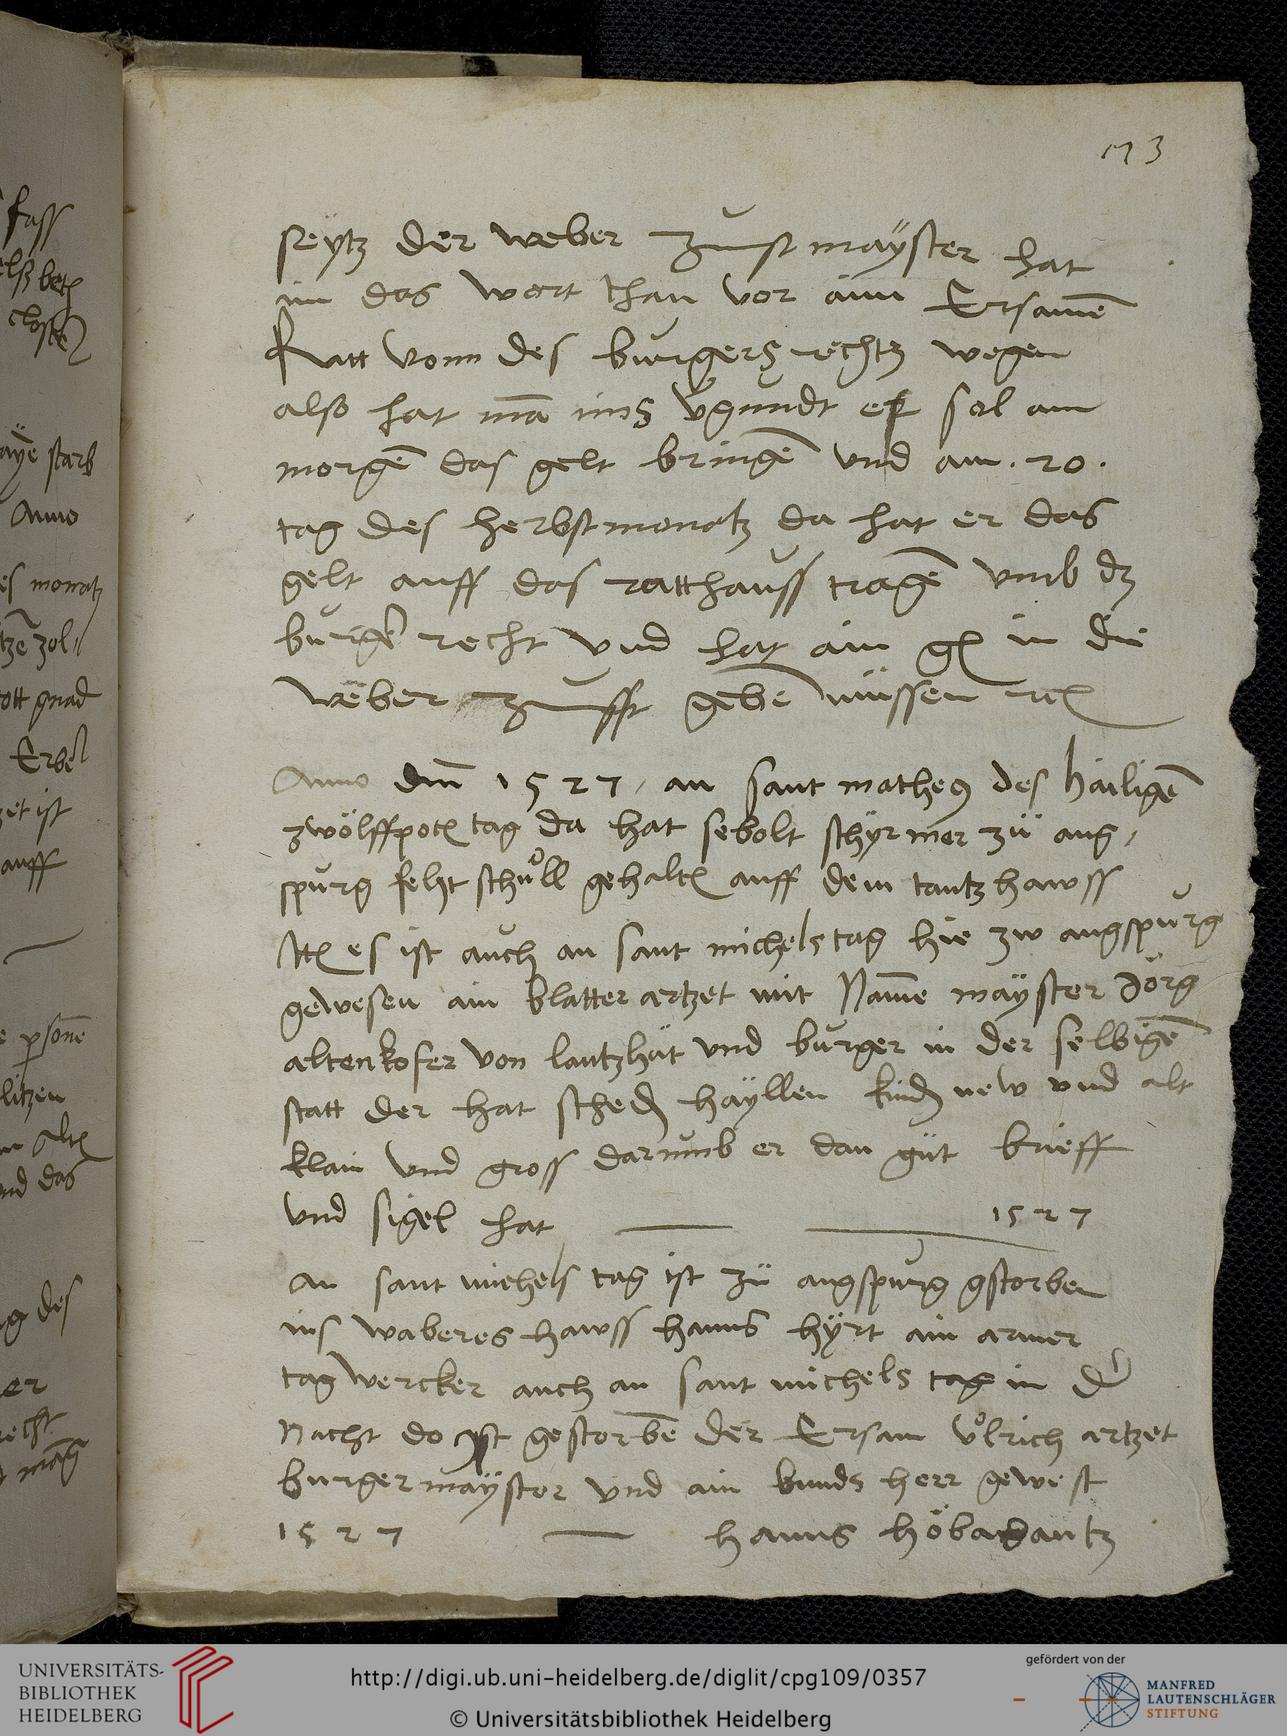 173
seytz der weber zunfft mayster hat
im das wort than vor aim Ersamē
Ratt vonn des burgers rechtz wegen
also hat mā ims vgundt er sol am
morgē das gelt bringē und am . 20 .
tag des herbstmonatz da hat er das
gelt auff das ratthauss tragē umb dz
burger recht und hat ain gl in die
weber zunfft gebē müssen
Anno dm̄ 1527 , an sant matheus des hailigē
zwölffpotē tag da hat sebolt schyrmer zü aug,
spurg feht schůll gehaltē auff dem tantzhawss
Itē es ist auch an sant michels tag hie zw augspurg
gewesen ain blatter artzet mit Namē mayster Jörg
altenkofer von lantzhüt und burger in der selbigē
statt der hat schedē hayllen kindē new und alt
klain und gross darumb er dan güt brieff
und sigel hat 1527
An sant michels tag ist zü augspurg gstorben
ins waberes hawss hanns hyrt ain armer
tag wercker auch an sant michels tag in der
Nacht do ist gestorbē der Ersam ůlrich artzet
burgermayster und ain bunds herr gewest
1527 hanns höbadantz
fass
Anno
starb
es monatz
zol
ott gnad
zet ist
auff
psonē
litzen
nd das
g des
er
recht
UNIVERSITÄTS-
BIBLIOTHEK
HEIDELBERG
http://digi.ub.uni-heidelberg.de/diglit/cpg109/0357
© Universitätsbibliothek Heidelberg
gefördert von der
MANFRED
LAUTENSCHLÄGER
STIFTUNG